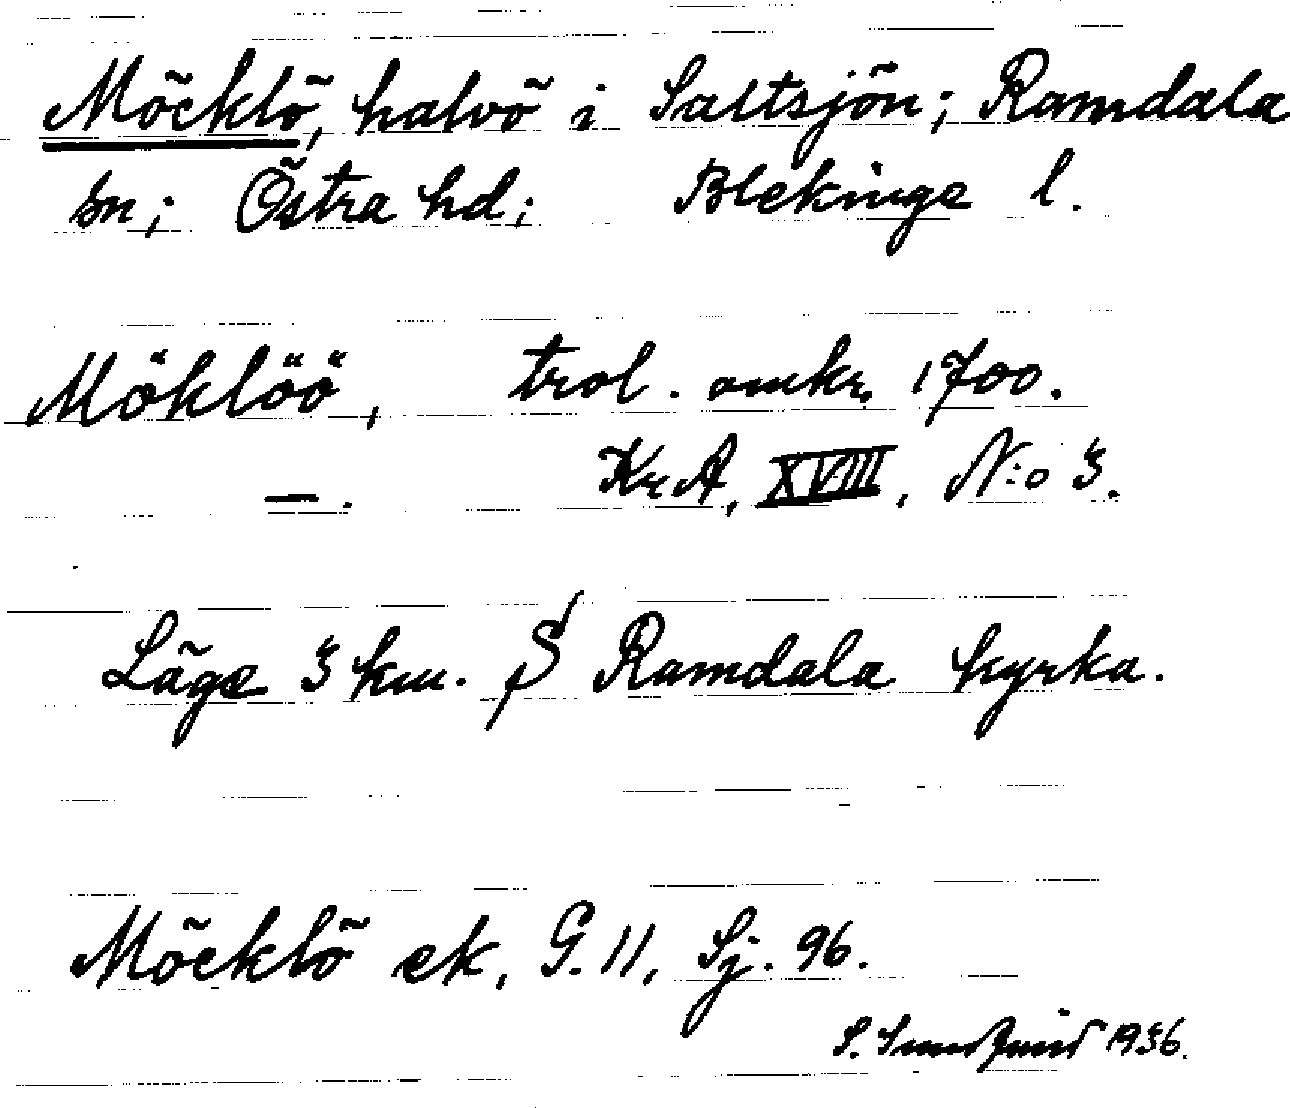 Möcklö, halvö i Saltsjön; Ramdala
sn; Östra hd; Blekinge l.
Möklöö, trol. omkr. 1700.
—. Kr.A, XVIII, N:o 3.
Läge 3 km. S Ramdala kyrka.
Möcklö ek, G. 11, Sj. 96.
S. 1936.